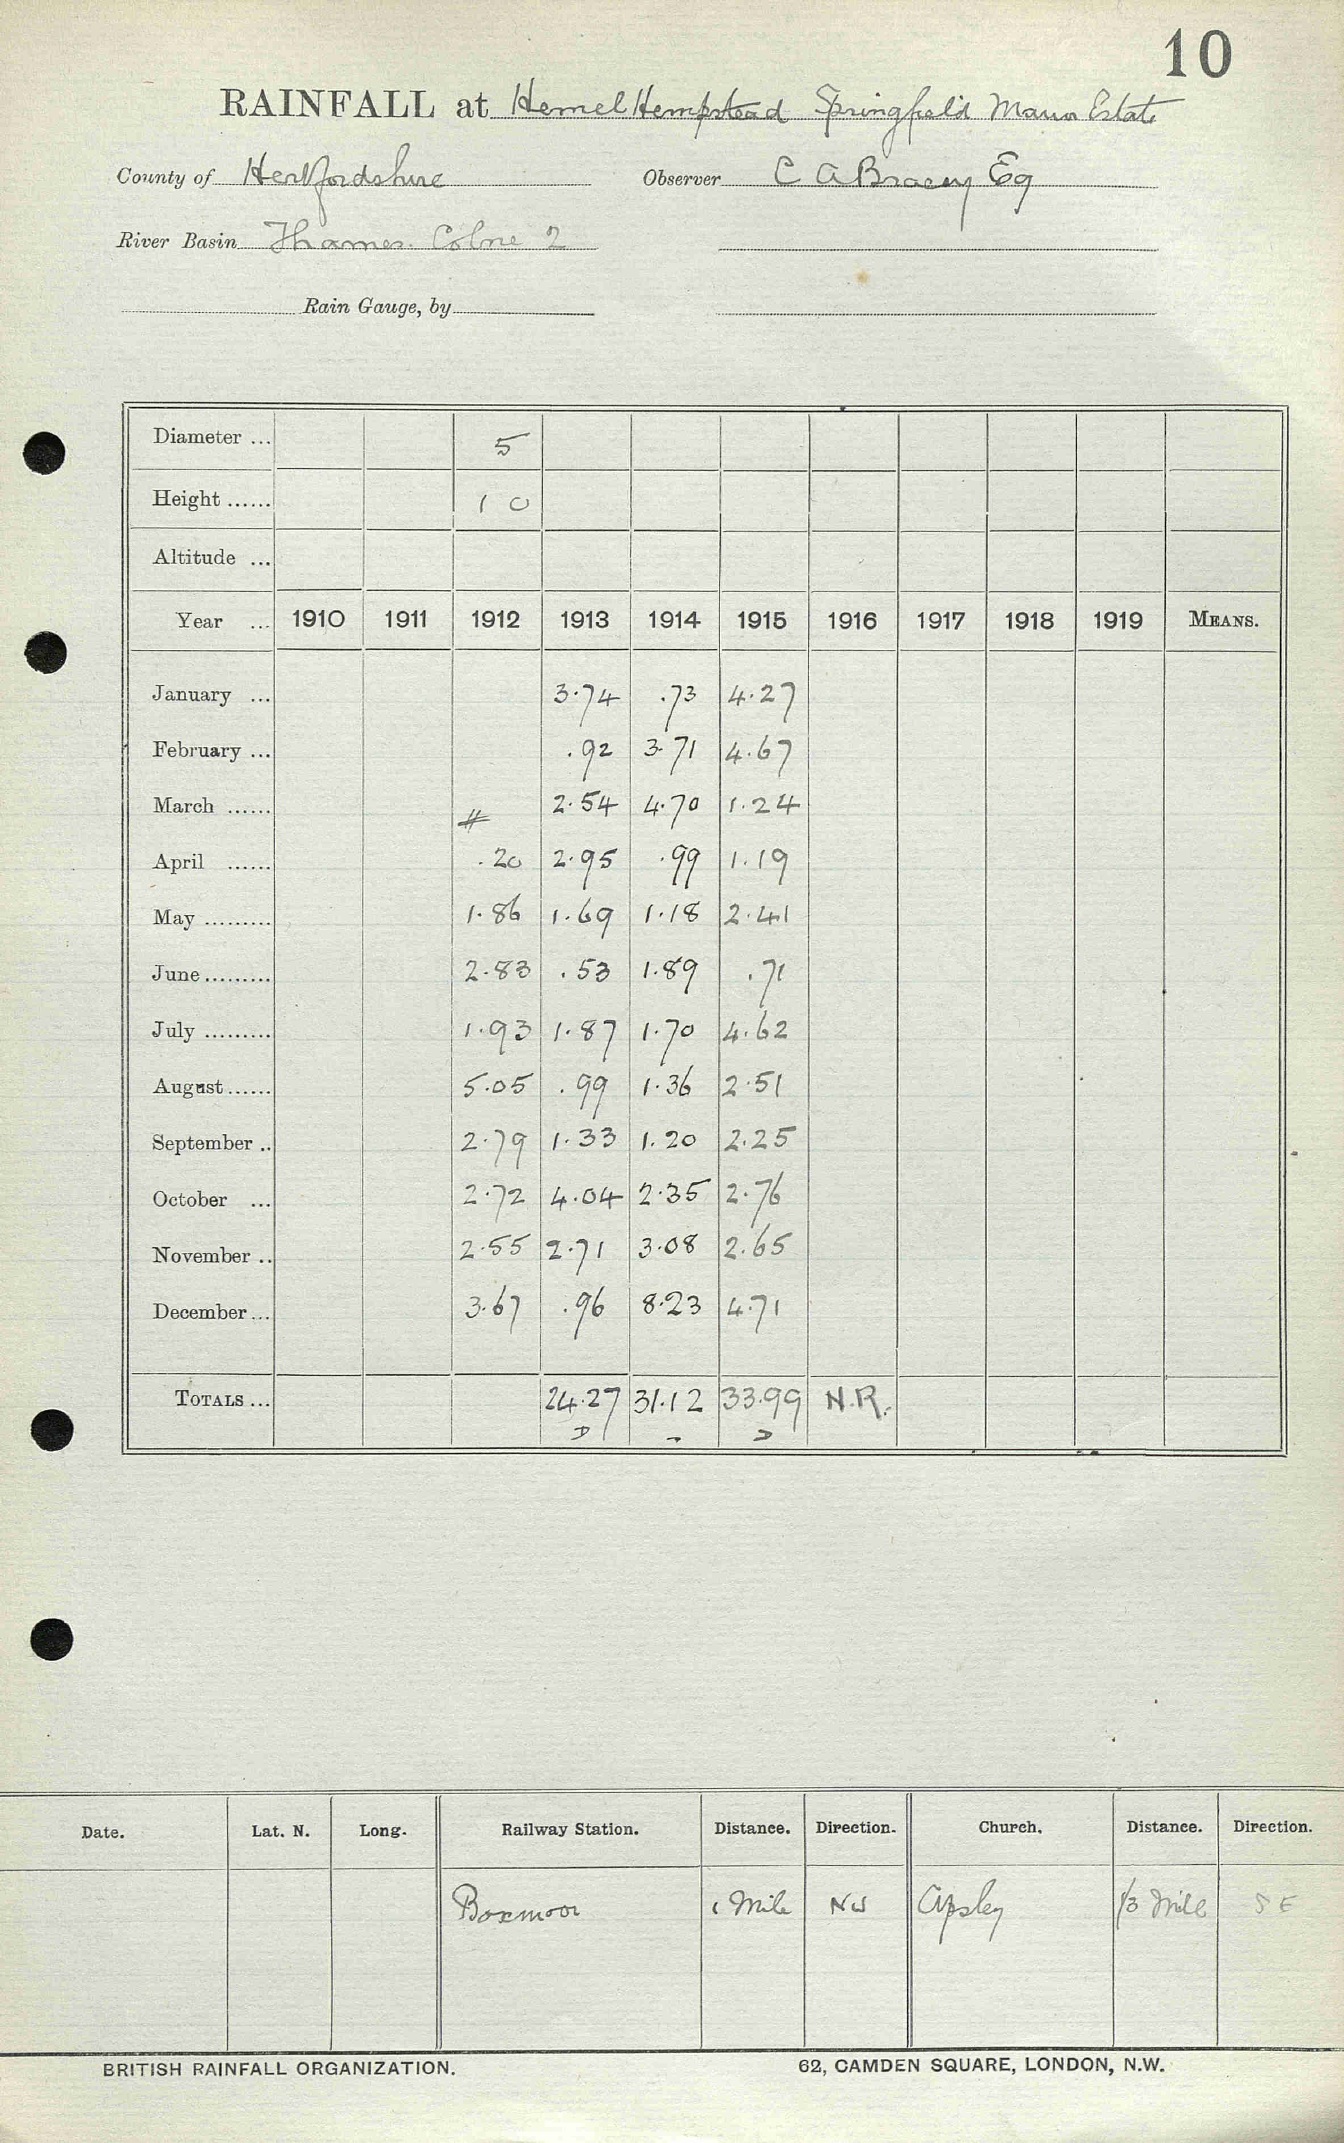 10
RAINFALL at Hemel Hempstead Springfield Manor Estate
County of Hertfordshire Observer C A Bracey Esq
River Basin Thames. Colne 2
Rain Gauge, by
Diameter ... 5
Height ...... 1 0
Altitude ...
Year ... 1910 1911 1912 1913 1914 1915 1916 1917 1918 1919 MEANS.
January ... 3.74 .73 4.27
February ... .92 3.71 4.67
March ...... # 2.54 4.70 1.24
April ...... .20 2.95 .99 1.19
May ......... 1.86 1.69 1.18 2.41
June ......... 2.83 .53 1.89 .71
July ......... 1.93 1.87 1.70 4.62
August ...... 5.05 .99 1.36 2.51
September .. 2.79 1.33 1.20 2.25
October ... 2.72 4.04 2.35 2.76
November .. 2.55 2.71 3.08 2.65
December ... 3.67 .96 8.23 4.71
TOTALS ... 24.27 31.12 33.99 N.R.
Date. Lat. N. Long. Railway Station. Distance. Direction. Church. Distance. Direction.
Boxmoor 1 Mile NW Apsley 1/3 Mile S E
BRITISH RAINFALL ORGANIZATION. 62, CAMDEN SQUARE, LONDON, N.W.